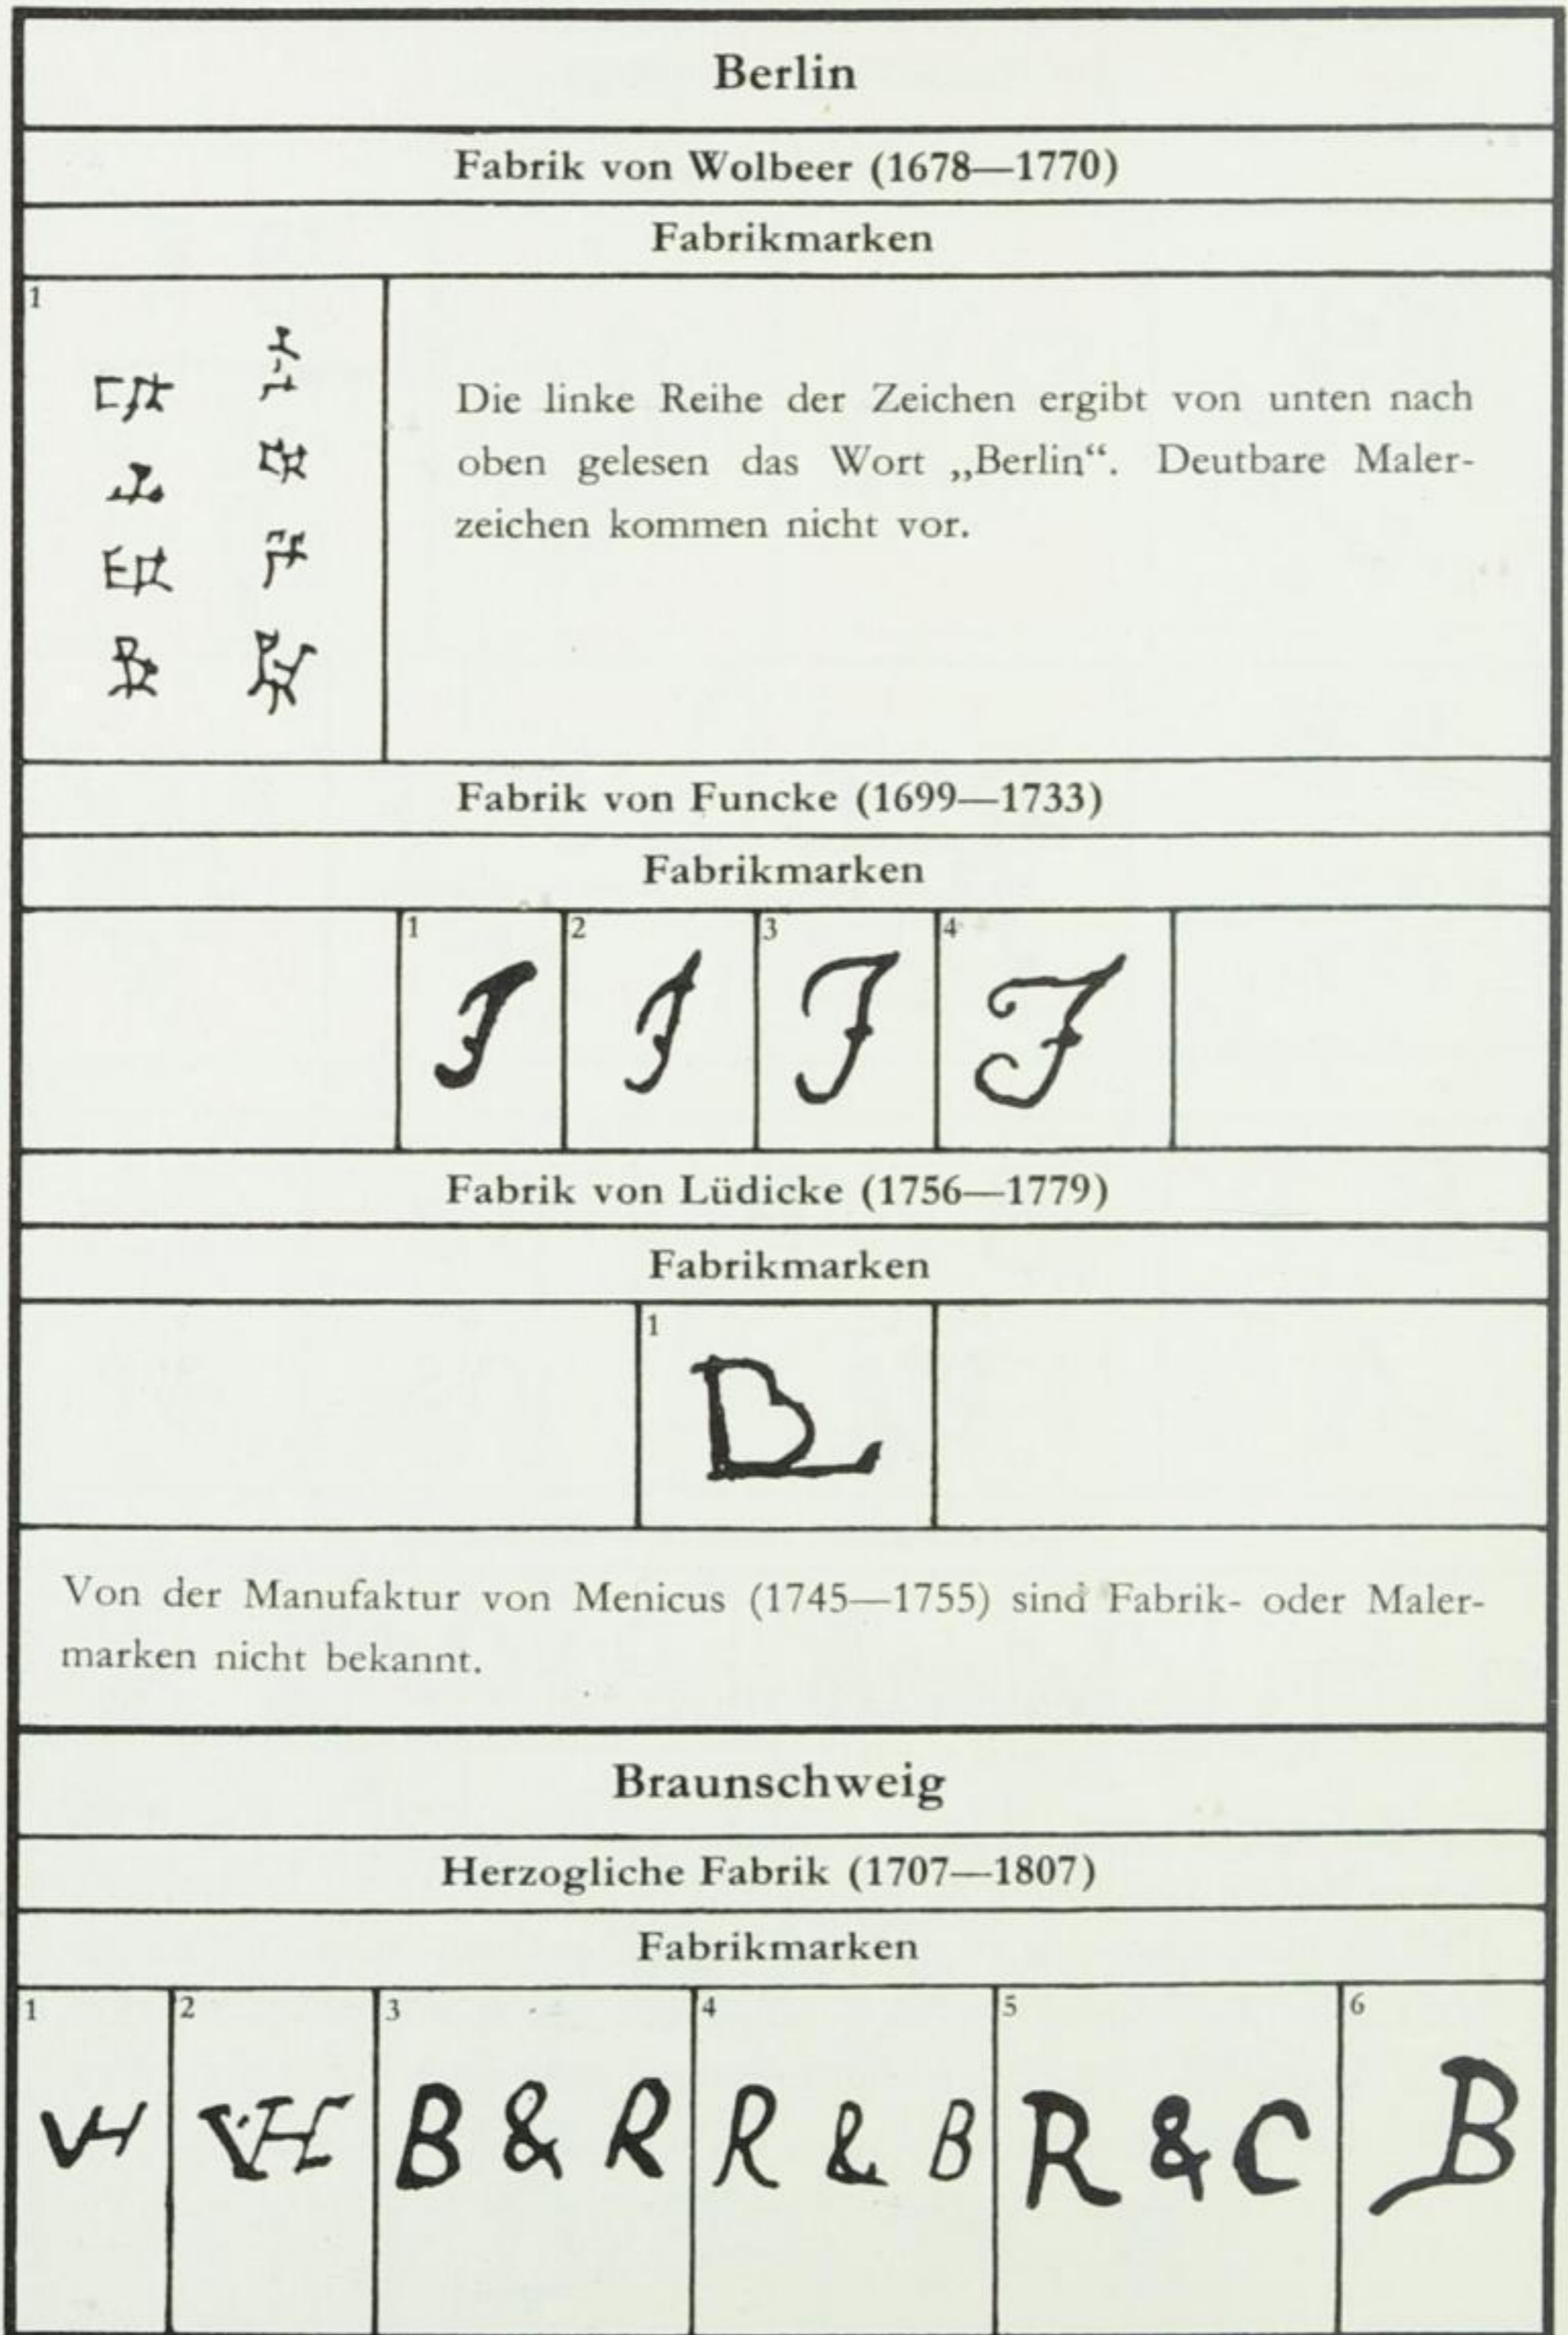 Berlin
Fabrik von Wolbeer (1678—1770)
Fabrikmarken
1
Die linke Reihe der Zeichen ergibt von unten nach
oben gelesen das Wort „Berlin“. Deutbare Maler-
zeichen kommen nicht vor.
Fabrik von Funcke (1699—1733)
Fabrikmarken
1 2 3 4
F F F F
Fabrik von Lüdicke (1756—1779)
Fabrikmarken
1
BL
Von der Manufaktur von Menicus (1745—1755) sind Fabrik- oder Maler-
marken nicht bekannt.
Braunschweig
Herzogliche Fabrik (1707—1807)
Fabrikmarken
1 2 3 4 5 6
VH VH B & R R & B R & C B